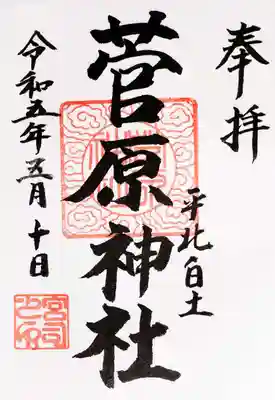 奉拝
菅原神社
令和五年五月十日
宮司之印